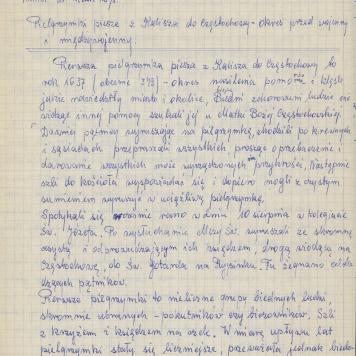 Pielgrzymki piesze z Kalisza do Częstochowy - okres przed wojenny
i międzywojenny.
Pierwsza pielgrzymka piesza z Kalisza do Częstochowy to
rok 1637 / obecnie / - okres nasilenia pomorów i klęsk
jakie nawiedziły miasto i okolice. Biedni schorowani ludzie nie
widząc innej pomocy szukali jej u Matki Bożej Częstochowskiej.
Dawniej pątnicy wyruszając na pielgrzymkę, chodzili po krewnych
i sąsiadach przepraszali wszystkich prosząc o przebaczenie i
darowanie wszystkich może wyrządzonych przykrości, Następnie
szli do kościoła wyspowiadać się i dopiero mogli z czystym
sumieniem wyruszyć w uciążliwą pielgrzymkę.
Spotykali się rano w dniu 10 sierpnia w kolegiacie
Św. Józefa. Po wysłuchaniu Mszy Św. wyruszali ze skromną
asystą i odprowadzającym ich księdzem, drogą wiodącą na
Częstochowę, do Św. Gotarda na Rypinku. Tu żegnano
pątników.
Pierwsze pielgrzymki to nieliczne grupy biednych ludzi,
skromnie ubranych - pokutników czy biczowników. Szli
z krzyżem i księdzem na czele. W miarę upływu lat
pielgrzymki stały się liczniejsze, przeważała jednak